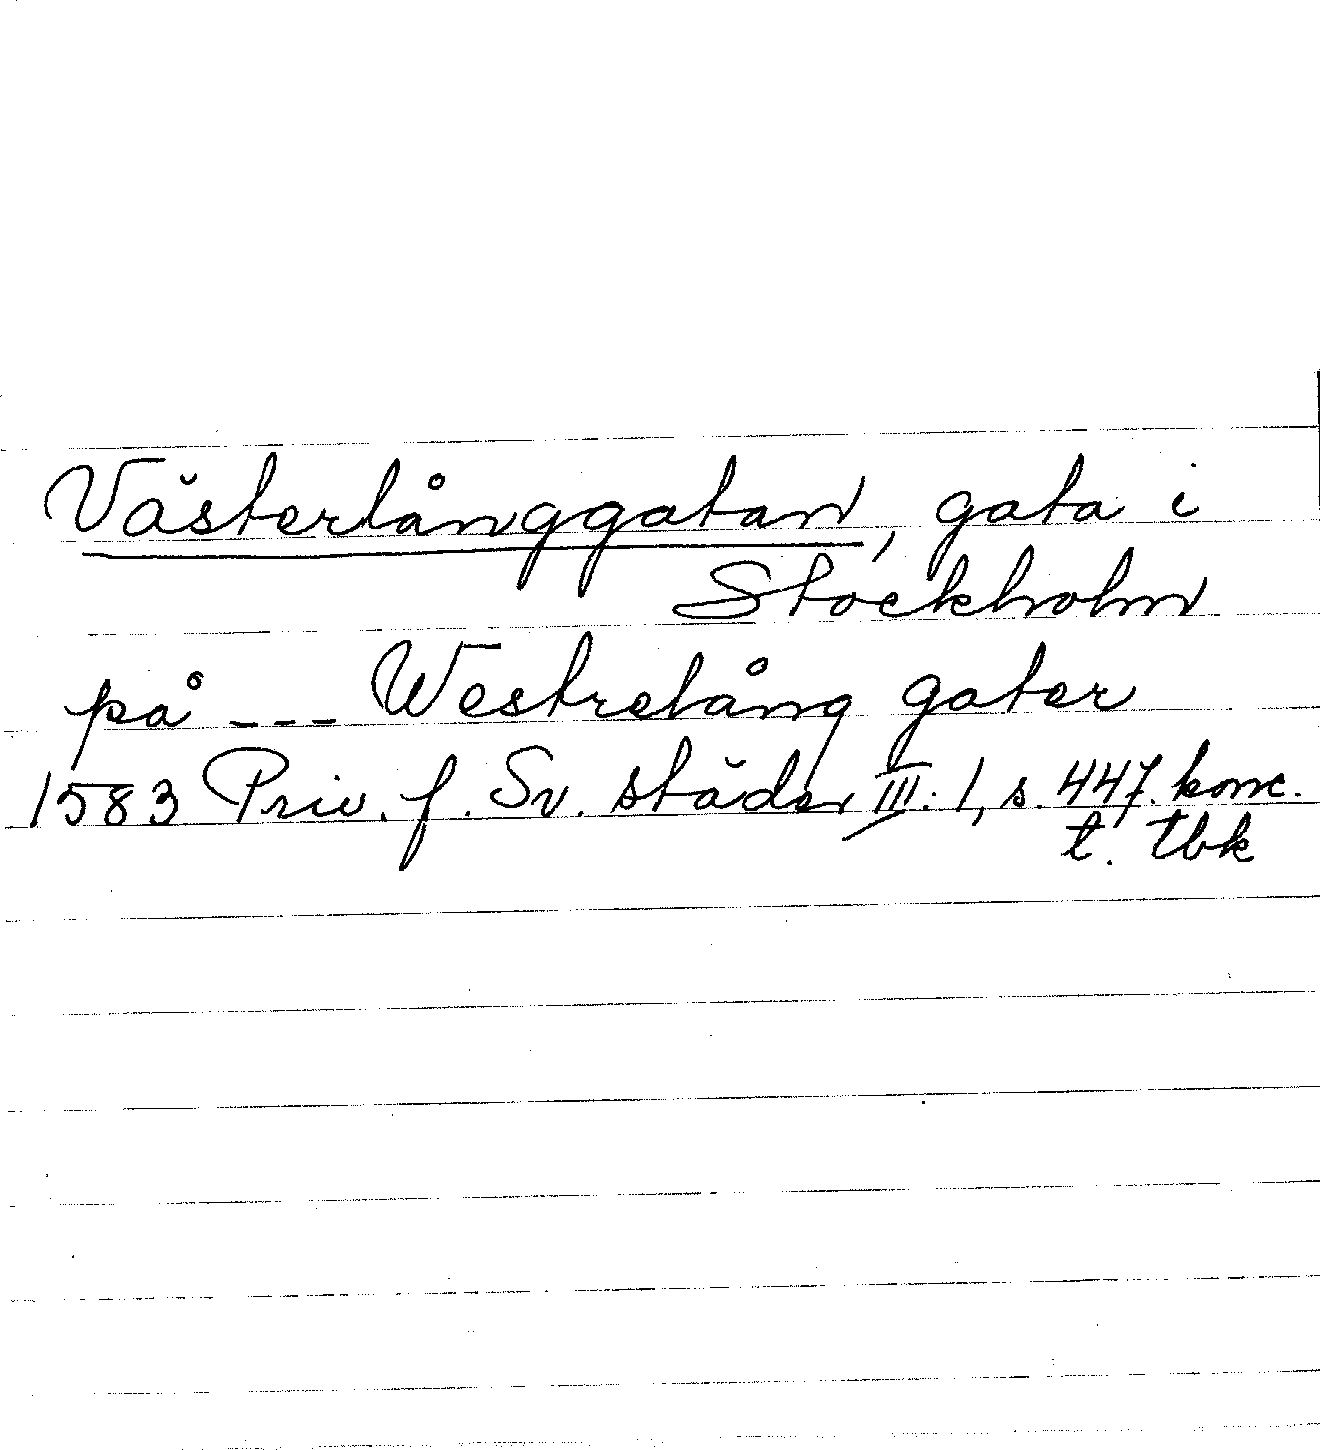 Västerlånggatan, gata i
Stockholm
på --- Westrelång gater
1583 Priv. f. Sv. städer III: 1, s. 447. konc.
t. tbk